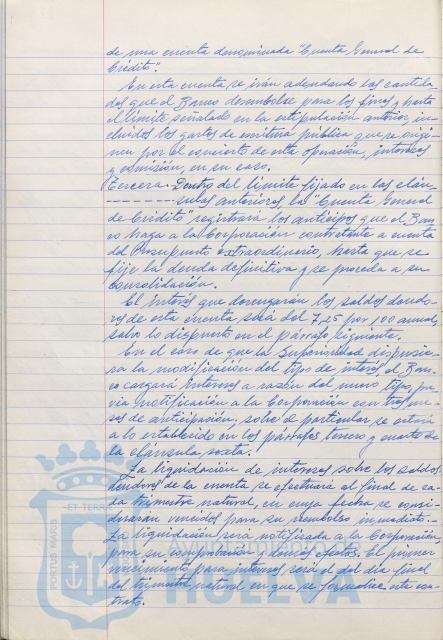 de una cuenta denominada "Cuenta General de
Crédito".
En esta cuenta se irán adeudando las cantida
des que el Banco desembolse para los fines y hasta
el límite señalado en la estipulación anterior, in
cluidos los gastos de escritura pública que se origi
nen por el concierto de esta operación, intereses
y comisión, en su caso.
Tercera.- Dentro del límite fijado en las cláu
sulas anteriores, la "Cuenta General
de Crédito" registrará los anticipos que el Ban
co haga a la Corporación contratante a cuenta
del Presupuesto extraordinario, hasta que se
fije la deuda definitiva y se proceda a su
consolidación.
El interés que devengarán los saldos deudo
res de esta cuenta será del 7,25 por 100 anual,
salvo lo dispuesto en el párrafo siguiente.
En el caso de que la Superioridad dispusie
ra la modificación del tipo de interés el Ban
co cargará intereses a razón del nuevo tipo, pre
via notificación a la Corporación con tres me
ses de anticipación, sobre el particular se estará
a lo establecido en los párrafos tercero y cuarto de
la cláusula sexta.
La liquidación de intereses sobre los saldos
deudores de la cuenta se efectuará al final de ca
da trimestre natural, en cuya fecha se consi
derarán vencidos para su reembolso inmediato.
La liquidación será notificada a la Corporación,
para su comprobación y demás efectos. El primer
vencimiento para intereses será el del día final
del trimestre natural en que se formalice este con
trato.
PORTUS MARIS
ET TERR
HUELVA